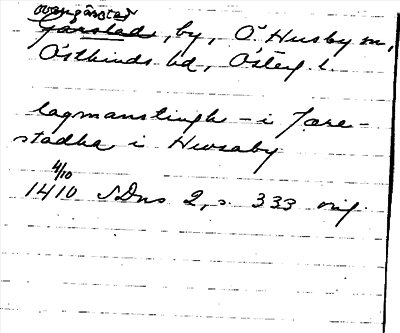 Jarstad, by, Ö. Husby sn,
Östkinds hd, Österg. l.
lagmanstingh – i Jære-
stadha i Hwsaby
4/10
1410 SDns 2, s. 333 orig.